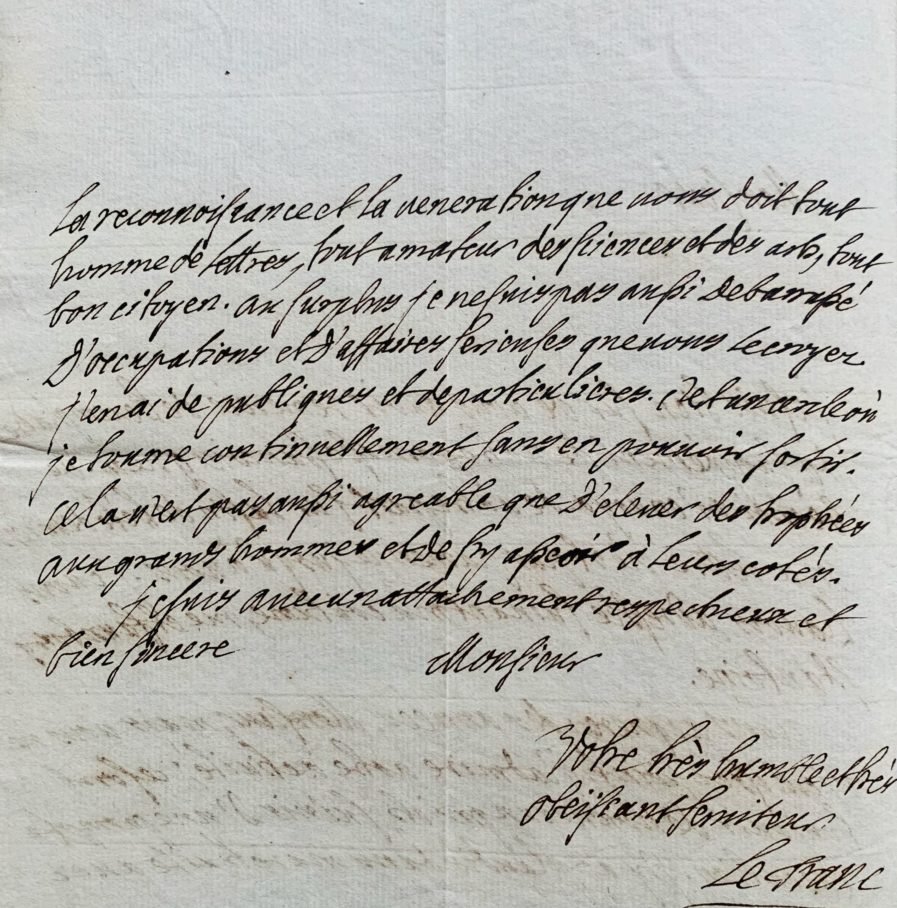 la reconnoissance et la veneration que vous doit tout
homme de lettres, tout amateur des sciences et des arts, tout
bon citoyen. au surplus je ne suis pas aussi debarassé
d'occupations et d'affaires serieuses que vous le croyez
j'en ai de publiques et de particulieres. c'est un cercle où
je tourne continuellement sans en pouvoir sortir.
cela n'est pas aussi agreable que d'elever des trophées
aux grands hommes et de s'y asseoir à leurs cotés.
je suis avec un attachement respectueux et
bien sincere Monsieur
Votre très humble et très
obeissant serviteur
Le Franc